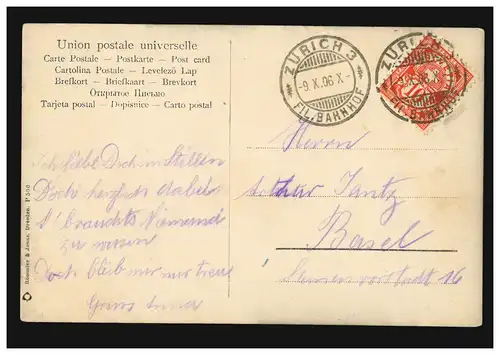 Union postale universelle
Carte Postale – Postkarte – Post card
Cartolina Postale – Levelező Lap
Brefkort – Briefkaart – Brevkort
Открытое Письмо
Tarjeta postal – Dopisnice – Carto postal
ZÜRICH 3
-9.X.06 X-
FIL. BAHNHOF
ZÜRICH
FIL. BAHNHOF
Ich liebe Dich im Stillen
Doch herzlich dabei
S' brauchts Niemand
zu wissen
Doch bleib mir nur treu
Herrn
Arthur Jantz
Basel
16
Dresden.